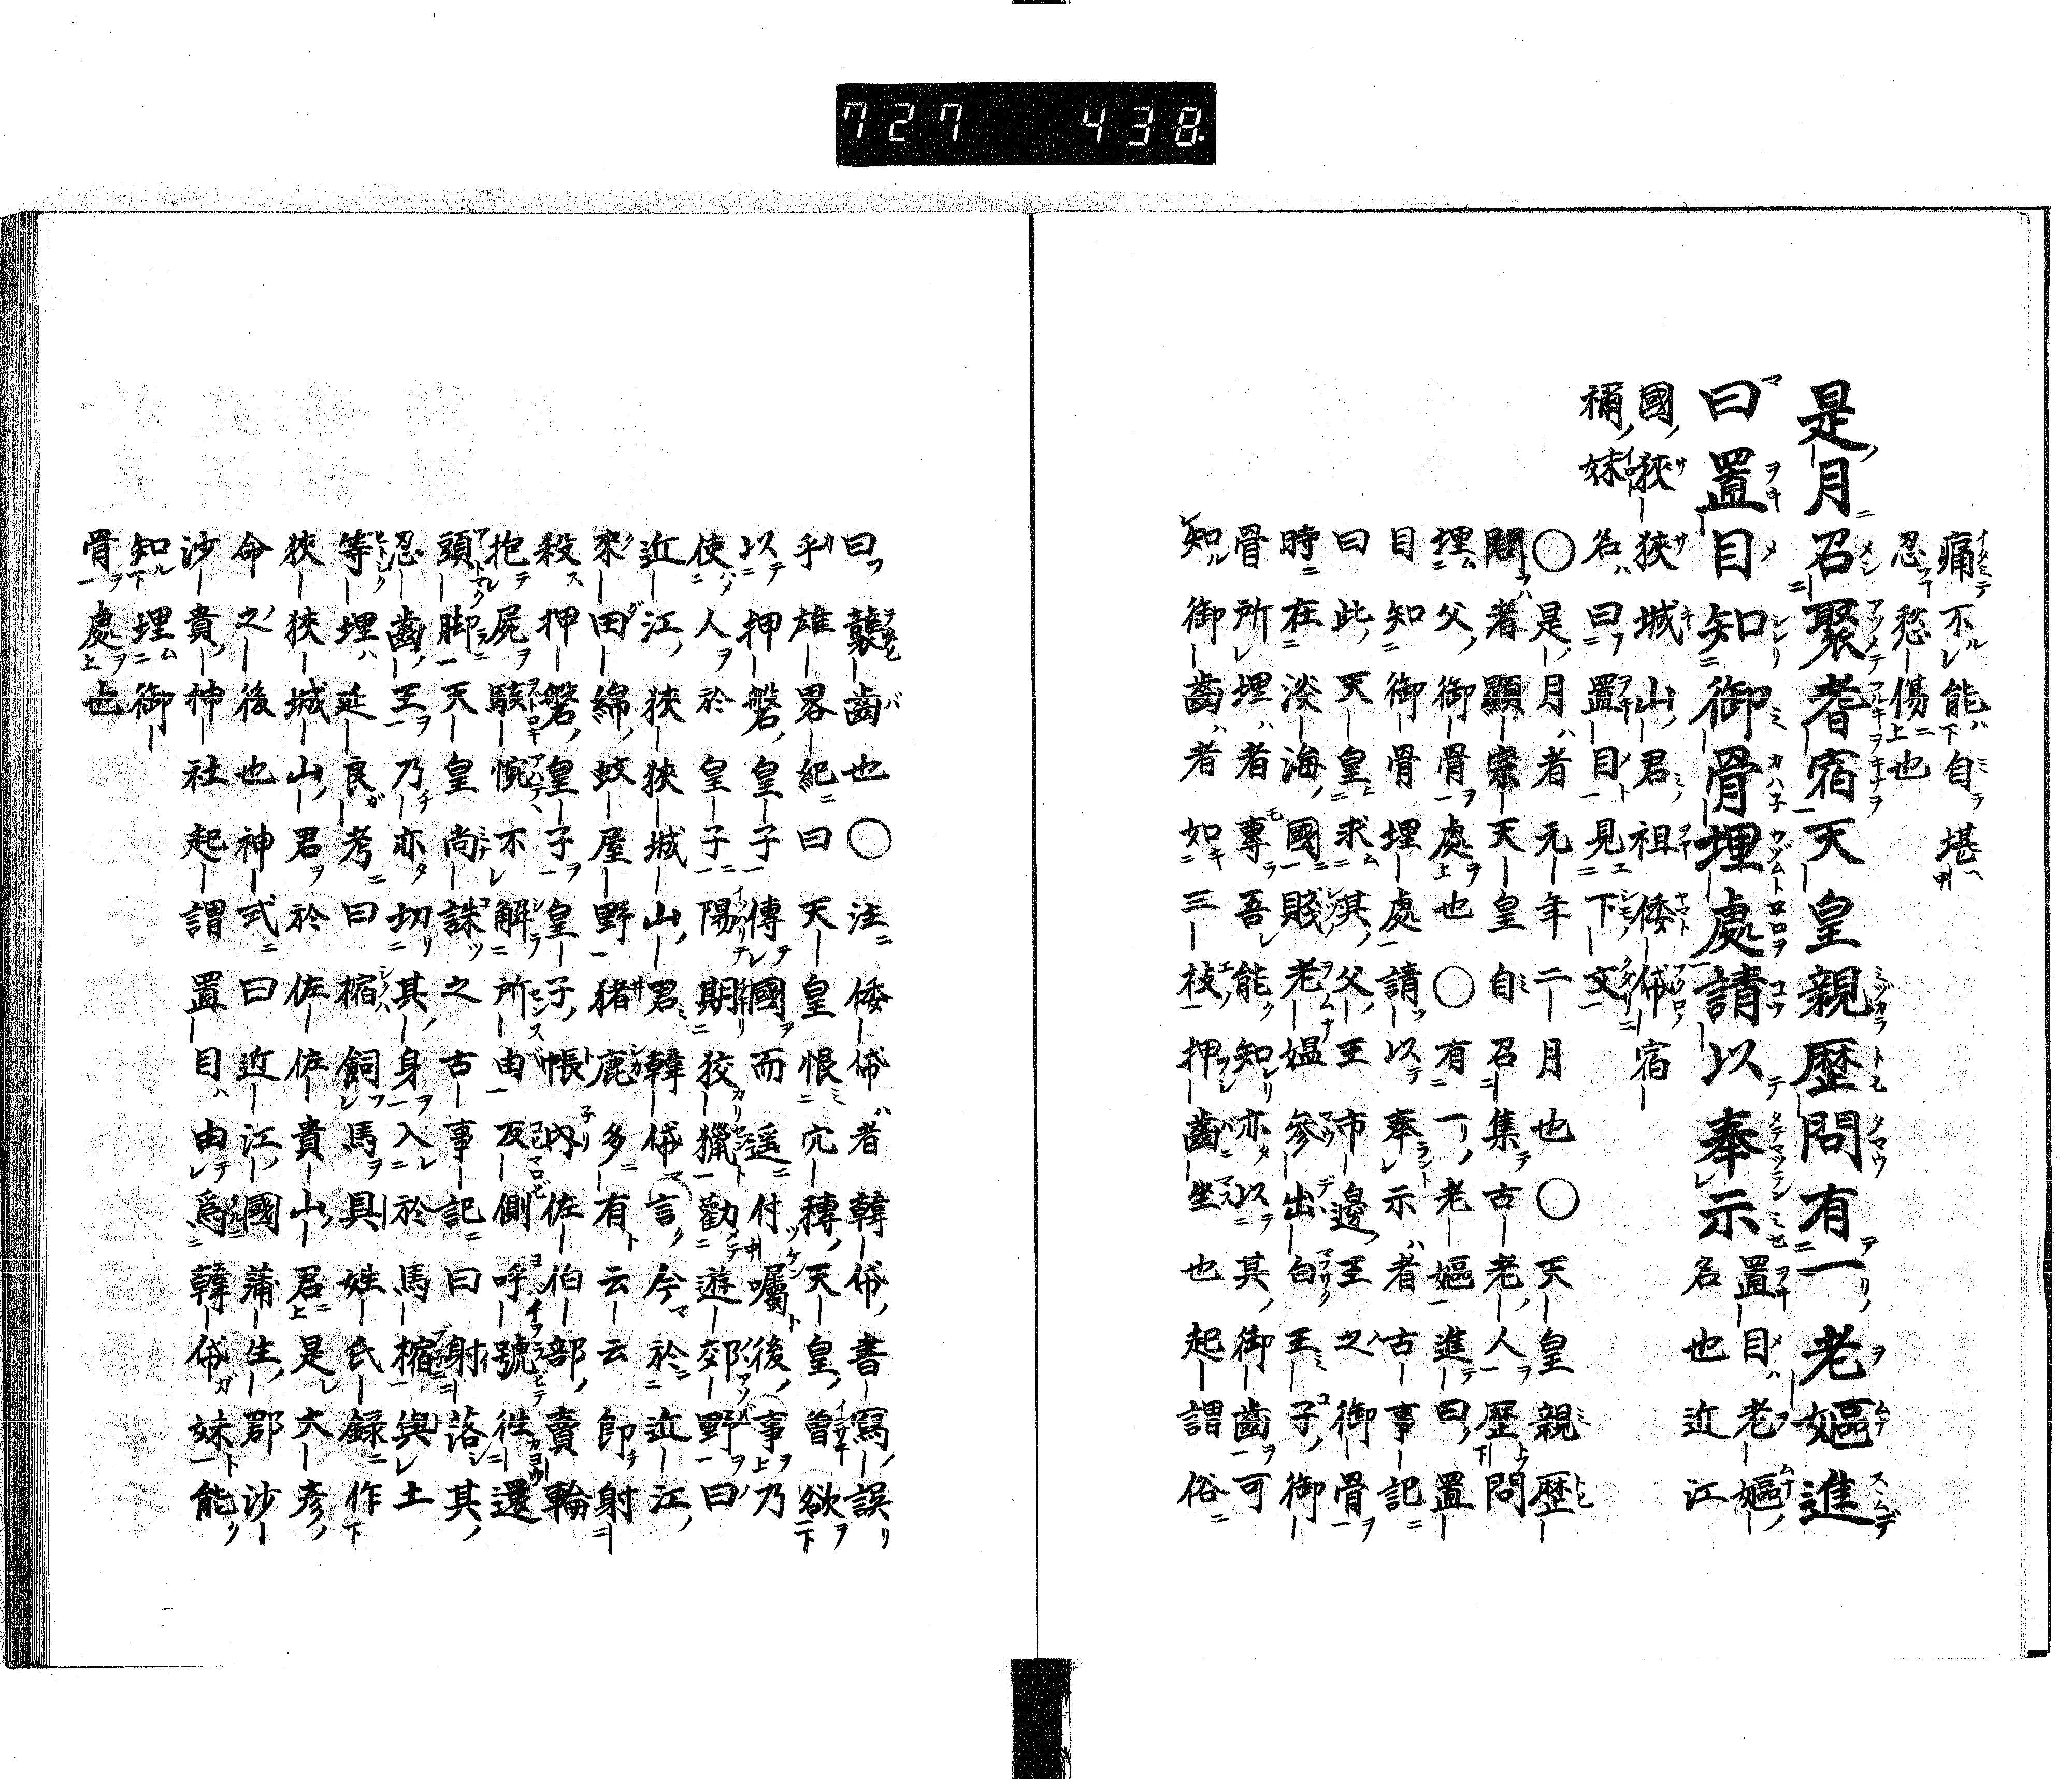 727 438
痛不能自堪
忍愁傷也
是月召聚耆宿天皇親歷問有一老嫗進
曰置目知御骨埋處請以奉示
置目老嫗
名也近江
國狹狹城山君祖倭帒宿
禰妹名曰置目見下文
○是月者元年二月也○天皇親歷
問者顯宗天皇自召集古老人歷問
埋父御骨處也○有一老嫗進曰置
目知御骨埋處請以奉示者古事記
曰此天皇求其父王市邊王之御骨
時在淡海國賤老媼參出白王子御
骨所埋者專吾能知亦以其御齒可
知御齒者如三枝押齒坐也起謂俗
曰襲齒也○注倭帒者韓帒書寫誤
乎雄畧紀曰天皇恨穴穗天皇曾欲
以押磐皇子傳國而遥付囑後事乃
使人於皇子陽期狡獵勸遊郊野曰
近江狹狹城山君韓帒言今於近江
來田綿蚊屋野猪鹿多有云云即射
殺押磐皇子皇子帳內佐伯部賣輪
抱屍駭惋不解所由反側呼號徃還
頭脚天皇尚誅之古事記曰射落其
忍齒王乃亦切其身入於馬樎與土
等埋延良考曰樎飼馬具姓氏錄作
狹狹城山君於佐佐貴山君是大彥
命之後也神式曰近江國蒲生郡沙
沙貴神社起謂置目由爲韓帒妹能
知埋御
骨處也